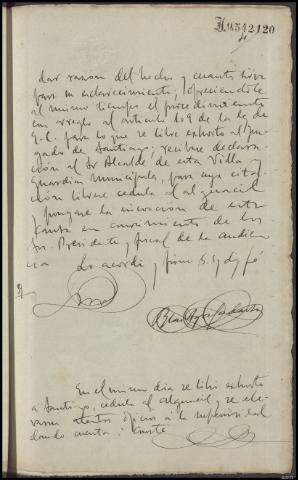 dar razon del hecho y cuanto sirva
para su esclarecimiento; ofreciendole
al mismo tiempo el procedimiento
con arreglo al articulo 109 de la ley de
E. C. para lo que se libre exhorto al Juz-
gado de Santiago; recibase declara-
ción al Sr Alcalde de esta Villa y
Guardias Municipales, para cuya cita-
ción librese cedula al alguacil
y pongase la incoación de esta
causa en conocimiento de los
Sres. Presidente y fiscal de la audien-
cia Lo acordó y firma S. Sª doy fé
En el mismo dia se libró exhorto
a Santiago, cedula al alguacil y se ele-
varon atentos oficios a la superioridad
dando cuenta;